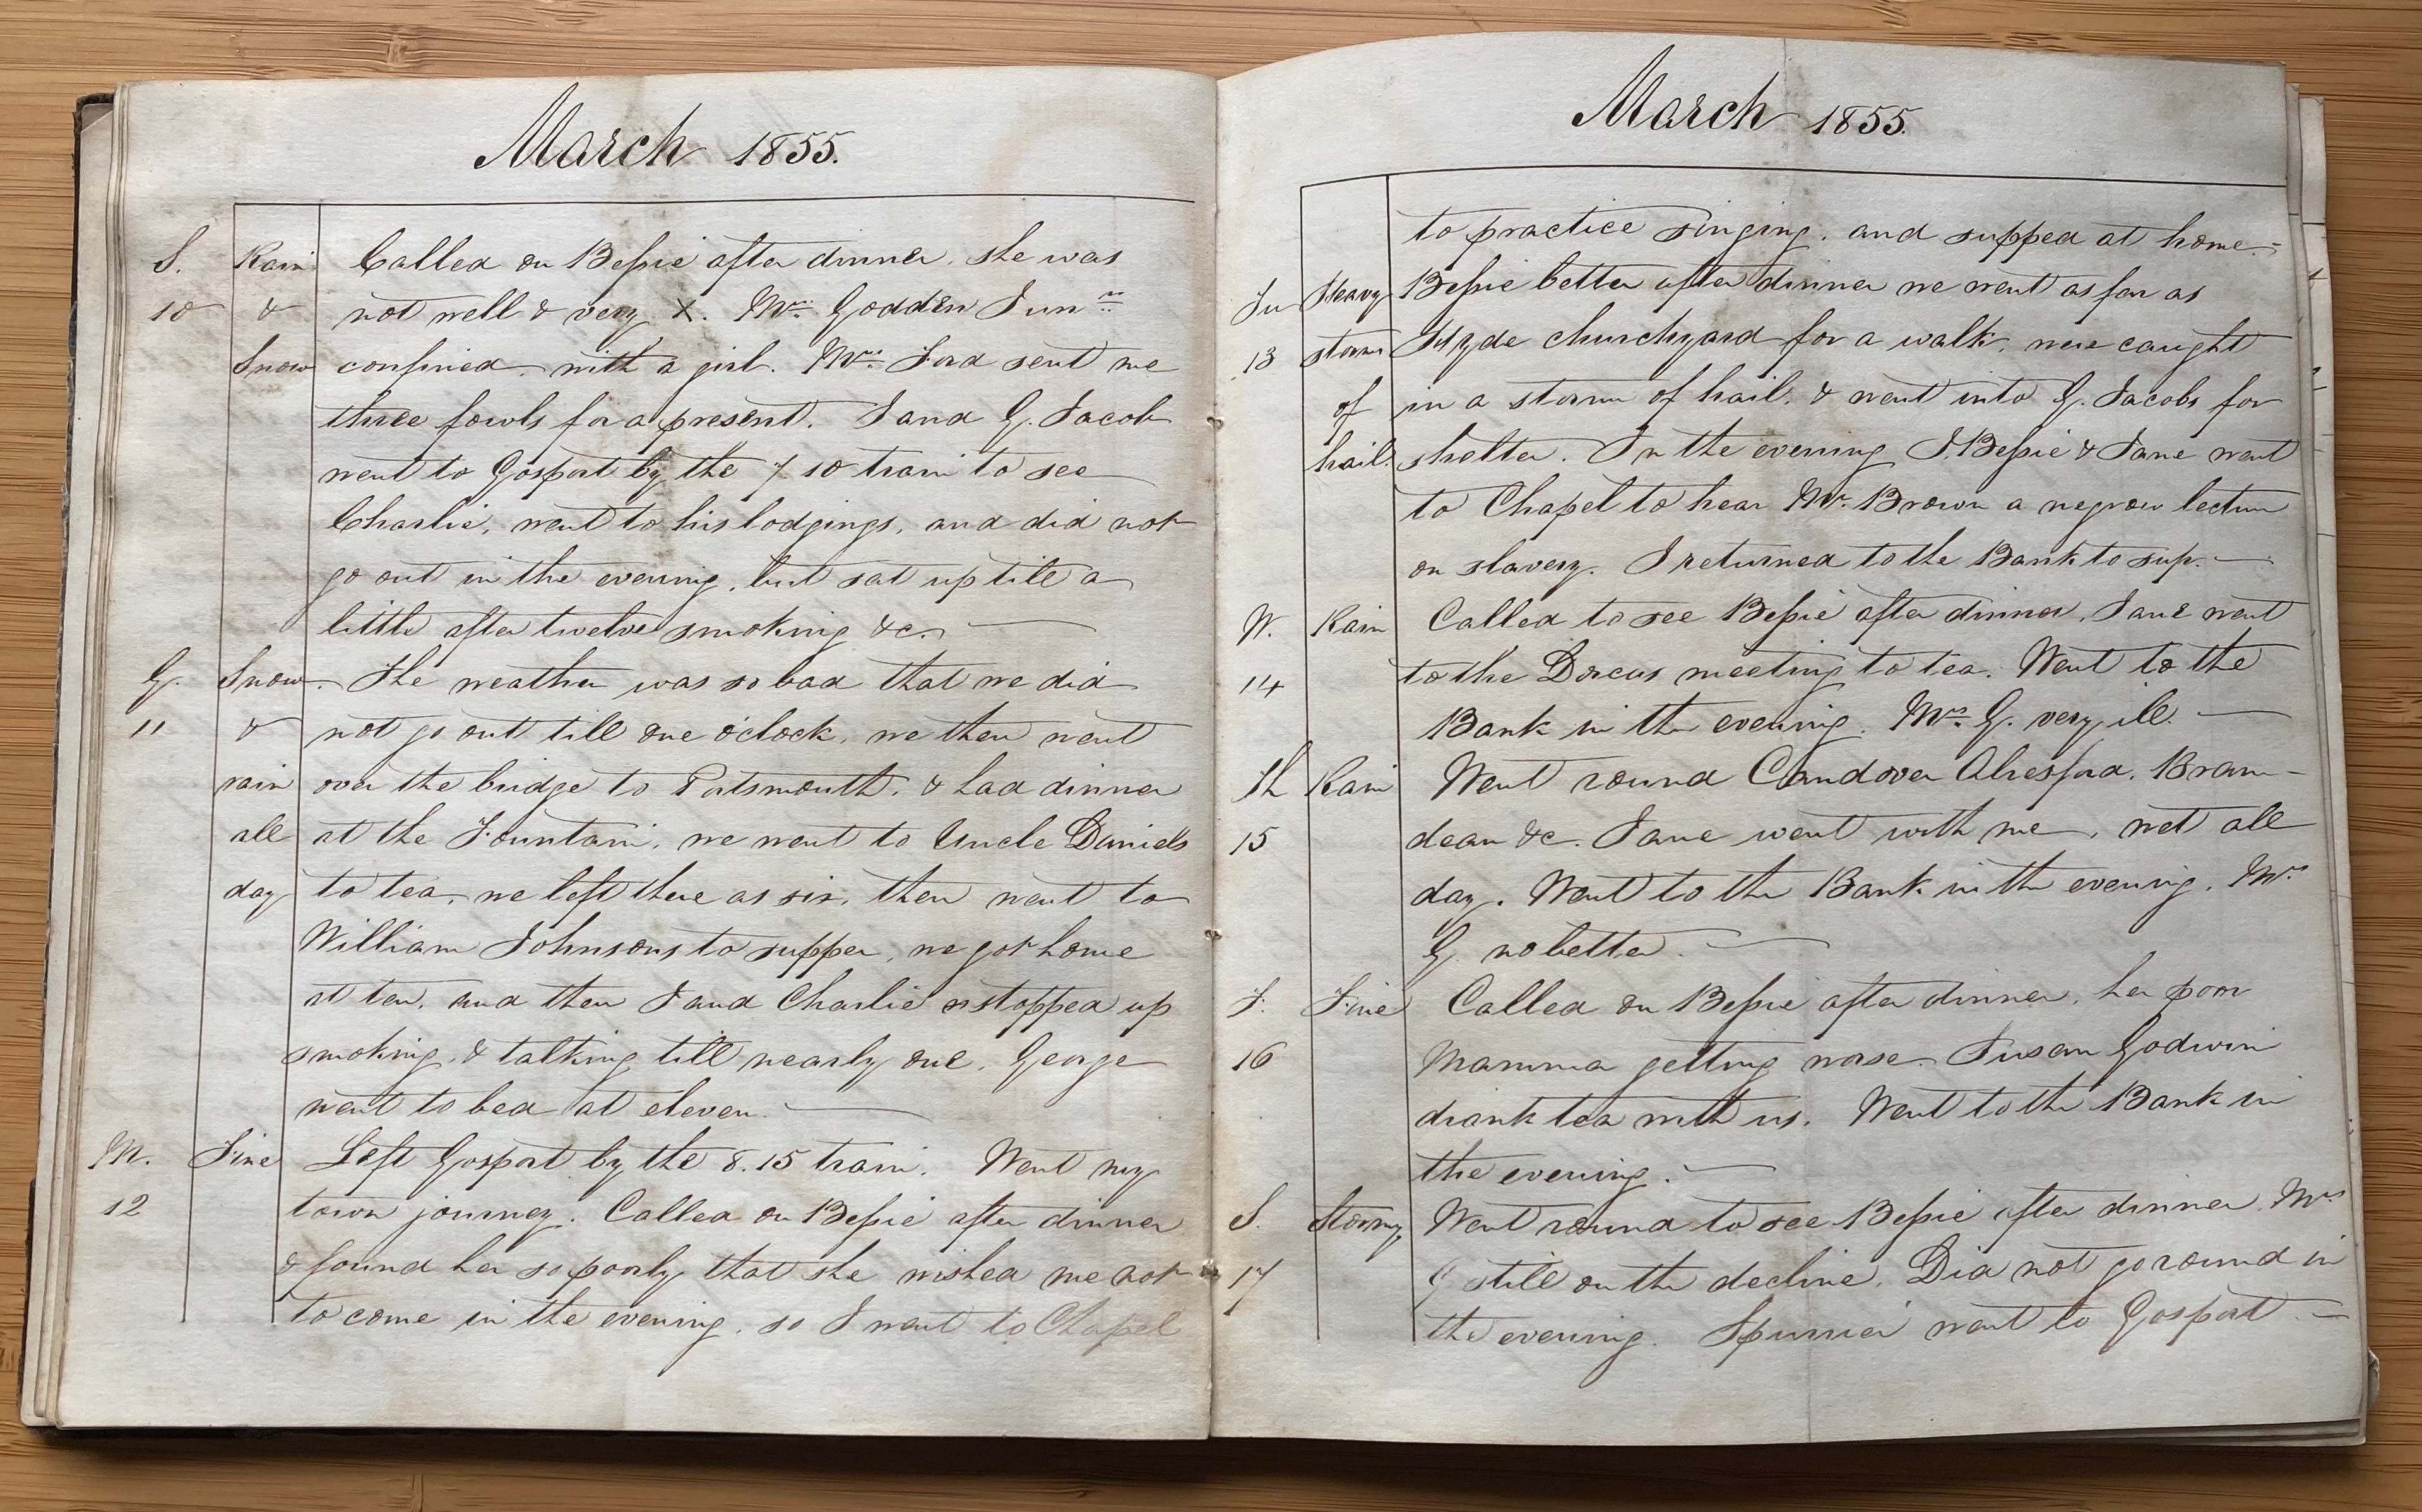 March 1855.
S. Rain Called on Bessie after dinner, she was
10 & not well & very X. Mrs. Godden Junr.
Snow confined with a girl. Mrs. Ford sent me
three fowls for a present. I and G. Jacob
went to Gosport by the 7 10 train to see
Charlie, went to his lodgings, and did not
go out in the evening, but sat up till a
little after twelve smoking &c. —
G. Snow The weather was so bad that we did
11 & not go out till one o'clock, we then went
rain over the bridge to Portsmouth, & had dinner
all at the Fountain, we went to Uncle Daniels
day to tea, we left there as six, then went to
William Johnsons to supper, we got home
at ten, and then I and Charlie stopped up
smoking, & talking till nearly one, George
went to bed at eleven. —
M. Fine Left Gosport by the 8.15 train. Went my
12 town journey. Called on Bessie after dinner
& found her so poorly that she wished me not
to come in the evening, so I went to Chapel
March 1855.
to practice singing, and supped at home. -
Tu Heavy Bessie better after dinner we went as far as
13 storm Hyde churchyard for a walk, were caught
of in a storm of hail, & went into G. Jacobs for
hail. shelter. In the evening I, Bessie & Jane went
to Chapel to hear Mr. Brown a negrow lecture
on slavery. I returned to the Bank to sup. —
W. Rain Called to see Bessie after dinner, Jane went
14 to the Dorcus meeting to tea. Went to the
Bank in the evening. Mrs. G. very ill. —
Th Rain Went round Candover Alresford, Bram-
15 dean &c. Jane went with me, wet all
day. Went to the Bank in the evening, Mrs
G. no better. —
F. Fine Called on Bessie after dinner, her poor
16 Mamma getting worse. Susan Godwin
drank tea with us. Went to the Bank in
the evening. —
S. Stormy, Went round to see Bessie after dinner. Mrs
17 G still on the decline. Did not go round in
the evening. Spurrier went to Gosport. —